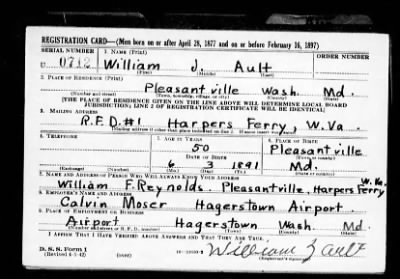 REGISTRATION CARD—(Men born on or after April 28, 1877 and on or before February 16, 1897)
SERIAL NUMBER 1. NAME (Print) ORDER NUMBER
U 0712 William J. Ault
(First) (Middle) (Last)
2. PLACE OF RESIDENCE (Print)
Pleasantville Wash. Md.
(Number and street) (Town, township, village, or city) (County) (State)
[THE PLACE OF RESIDENCE GIVEN ON THE LINE ABOVE WILL DETERMINE LOCAL BOARD
JURISDICTION; LINE 2 OF REGISTRATION CERTIFICATE WILL BE IDENTICAL]
3. MAILING ADDRESS
R.F.D.#1 Harpers Ferry, W.Va.
4. TELEPHONE 5. AGE IN YEARS 6. PLACE OF BIRTH
50 Pleasantville
DATE OF BIRTH (Town or county)
6 3 1891 Md.
(Exchange) (Number) (Mo.) (Day) (Yr.) (State or country)
7. NAME AND ADDRESS OF PERSON WHO WILL ALWAYS KNOW YOUR ADDRESS
W.Va.
William F. Reynolds. Pleasantville, Harpers Ferry
8. EMPLOYER'S NAME AND ADDRESS
Calvin Moser Hagerstown Airport
9. PLACE OF EMPLOYMENT OR BUSINESS
Airport Hagerstown Wash. Md.
(Number and street or R. F. D. number) (Town) (County) (State)
I AFFIRM THAT I HAVE VERIFIED ABOVE ANSWERS AND THAT THEY ARE TRUE.
D. S. S. Form 1
(Revised 4-1-42) (over) William J Ault
(Registrant's signature)